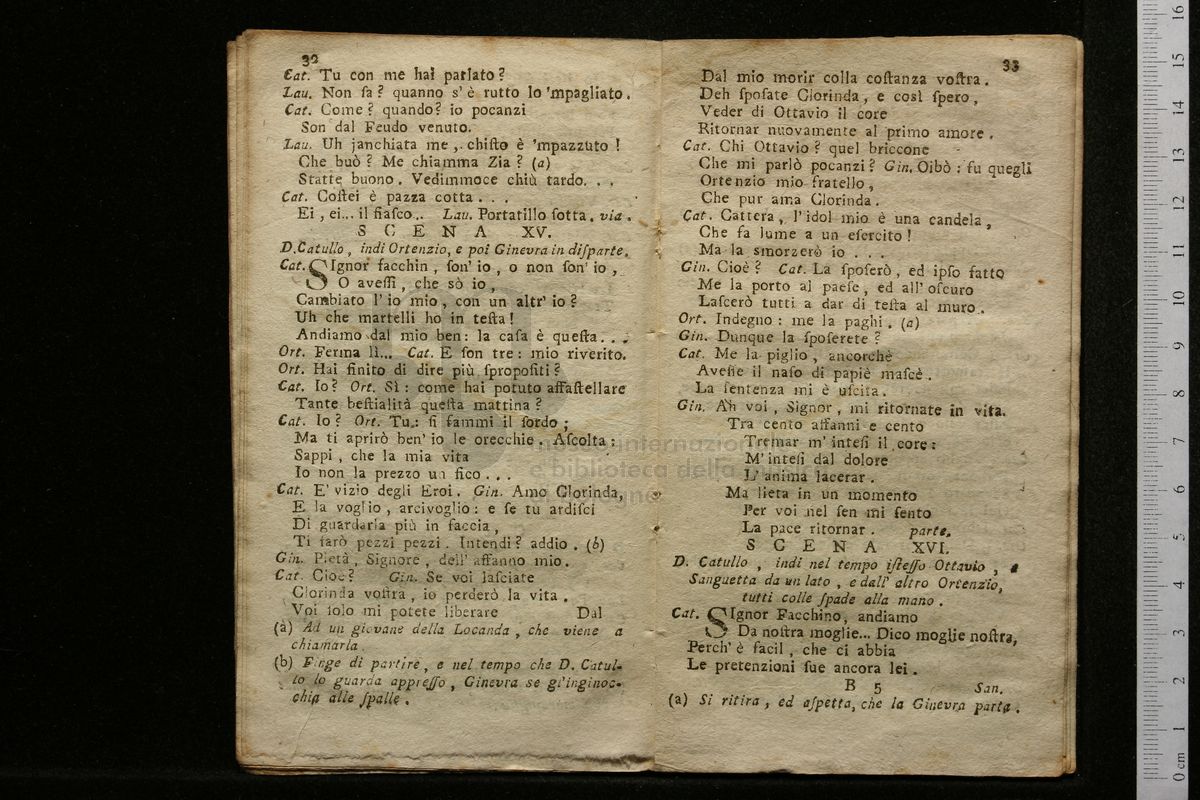 32
Cat. Tu con me hai parlato?
Lau. Non ſa? quanno s' è rutto lo 'mpagliato.
Cat. Come? quando? io pocanzi
Son dal Feudo venuto.
Lau. Uh janchiata me, chiſto è 'mpazzuto!
Che buò? Me chiamma Zia? (a)
Statte buono. Vedimmoce chiù tardo. . .
Cat. Coſtei è pazza cotta . . .
Ei, ei... il fiaſco.. Lau. Portatillo ſotta. via.
S C E N A XV.
D. Catullo, indi Ortenzio, e poi Ginevra in diſparte.
Cat. SIgnor facchin, ſon' io, o non ſon' io,
O aveſſi, che sò io,
Cambiato l' io mio, con un altr' io?
Uh che martelli ho in teſta!
Andiamo dal mio ben: la caſa è queſta. . .
Ort. Ferma lì... Cat. E ſon tre: mio riverito.
Ort. Hai finito di dire più ſpropoſiti?
Cat. Io? Ort. Sì: come hai potuto affaſtellare
Tante beſtialità queſta mattina?
Cat. Io? Ort. Tu: ſi fammi il ſordo;
Ma ti aprirò ben' io le orecchie. Aſcolta:
Sappi, che la mia vita
Io non la prezzo un fico . . .
Cat. E' vizio degli Eroi. Gin. Amo Clorinda,
E la voglio, arcivoglio: e ſe tu ardiſci
Di guardarla più in faccia,
Ti farò pezzi pezzi. Intendi? addio. (b)
Gin. Pietà, Signore, dell' affanno mio.
Cat. Cioè? Gin. Se voi laſciate
Clorinda voſtra, io perderò la vita.
Voi ſolo mi potete liberare Dal
(a) Ad un giovane della Locanda, che viene a
chiamarla.
(b) Finge di partire, e nel tempo che D. Catul-
lo lo guarda appreſſo, Ginevra se gl'inginoc-
chia alle ſpalle.
33
Dal mio morir colla coſtanza voſtra.
Deh ſpoſate Clorinda, e così ſpero,
Veder di Ottavio il core
Ritornar nuovamente al primo amore.
Cat. Chi Ottavio? quel briccone
Che mi parlò pocanzi? Gin. Oibò: fu quegli
Ortenzio mio fratello,
Che pur ama Clorinda.
Cat. Cattera, l' idol mio è una candela,
Che fa lume a un eſercito!
Ma la smorzerò io . . .
Gin. Cioè? Cat. La ſpoſerò, ed ipſo fatto
Me la porto al paeſe, ed all' oſcuro
Laſcerò tutti a dar di teſta al muro.
Ort. Indegno: me la paghi. (a)
Gin. Dunque la ſpoſerete?
Cat. Me la piglio, ancorchè
Aveſſe il naſo di papiè maſcè.
La ſentenza mi è uſcita.
Gin. Ah voi, Signor, mi ritornate in vita.
Tra cento affanni e cento
Tremar m' inteſi il core:
M' inteſi dal dolore
L' anima lacerar.
Ma lieta in un momento
Per voi nel ſen mi ſento
La pace ritornar. parte.
S C E N A XVI.
D. Catullo, indi nel tempo iſteſſo Ottavio, e
Sanguetta da un lato, e dall' altro Ortenzio,
tutti colle ſpade alla mano.
Cat. SIgnor Facchino, andiamo
Da noſtra moglie... Dico moglie noſtra,
Perch' è facil, che ci abbia
Le pretenzioni ſue ancora lei.
B 5 San.
(a) Si ritira, ed aſpetta, che la Ginevra parta.